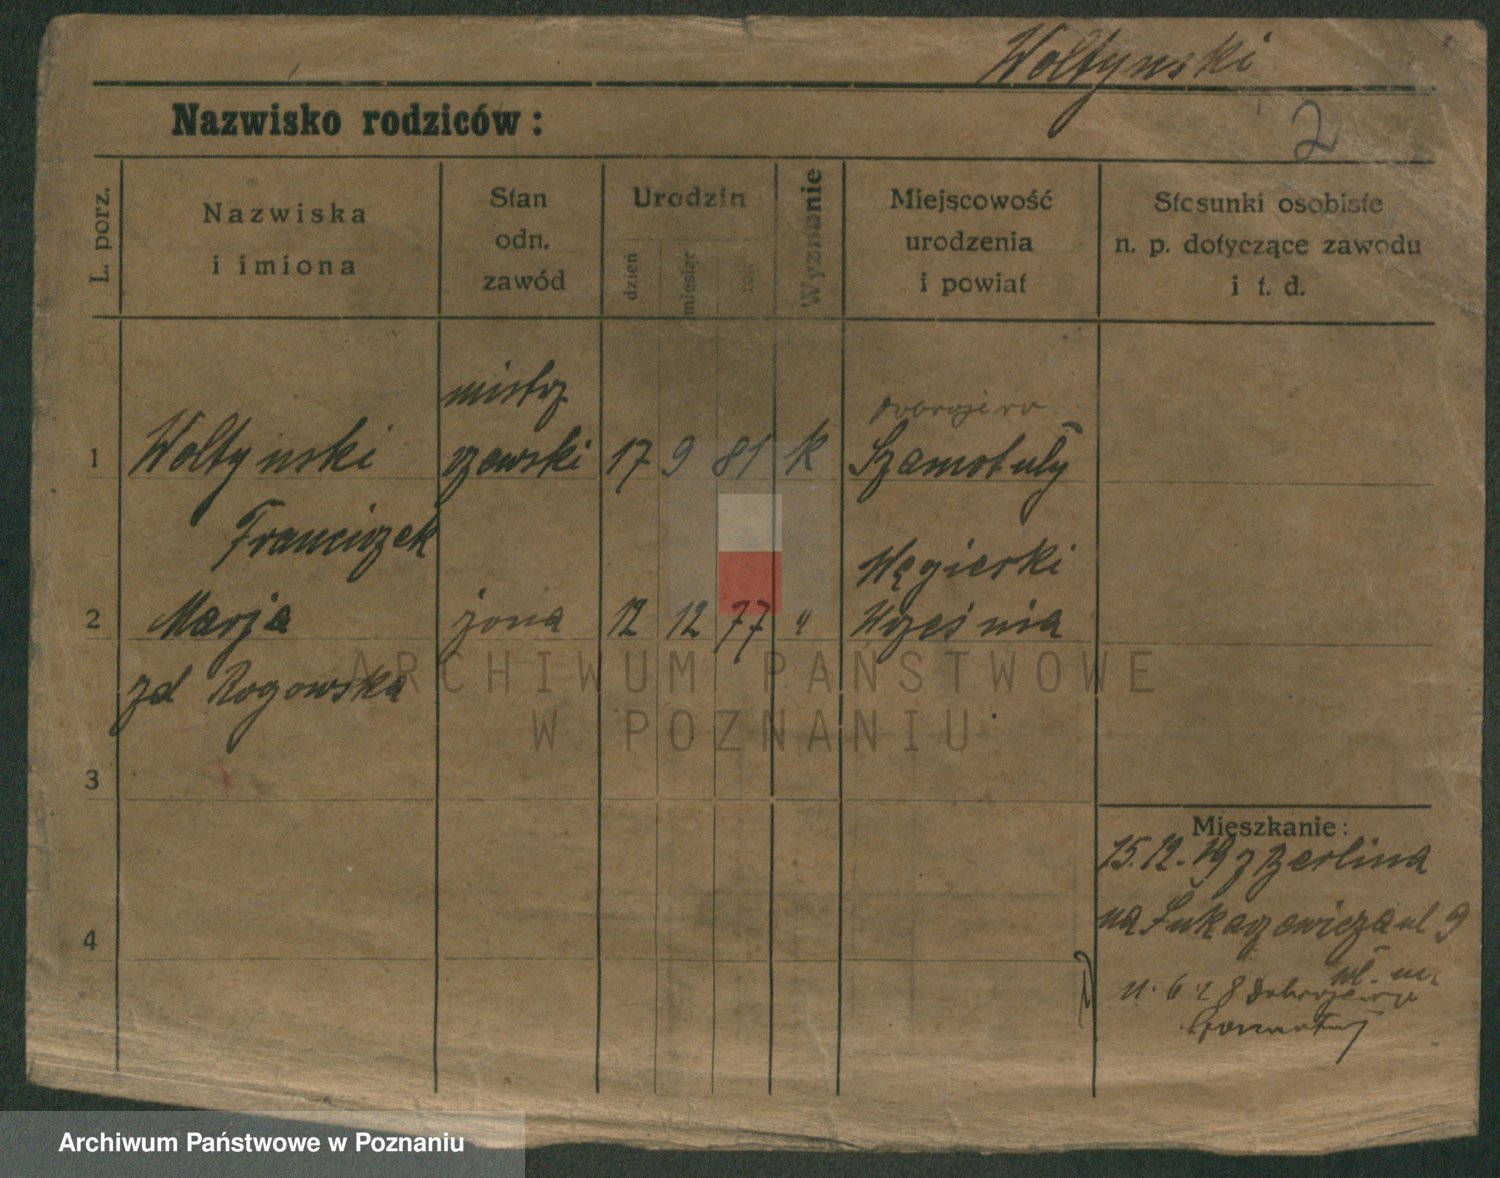 Woltynski
Nazwisko rodziców:
2
L. porz.
Nazwiska
i imiona
Stan
odn.
zawód
Urodzin
dzień
miesiąc
rok
Wyznanie
Miejscowość
urodzenia
i powiat
Stosunki osobiste
n. p. dotyczące zawodu
i t. d.
1
Woltynski
Franciszek
mistrz
szewski
17
9
81
k
Szamotuły
2
Marja
zd Rogowska
żona
12
12
77
"
Węgierki
Września
3
4
Mieszkanie:
15.12.19 z Berlina
na Łukaszewicza ul 9
ARCHIWUM PAŃSTWOWE
W POZNANIU
Archiwum Państwowe w Poznaniu